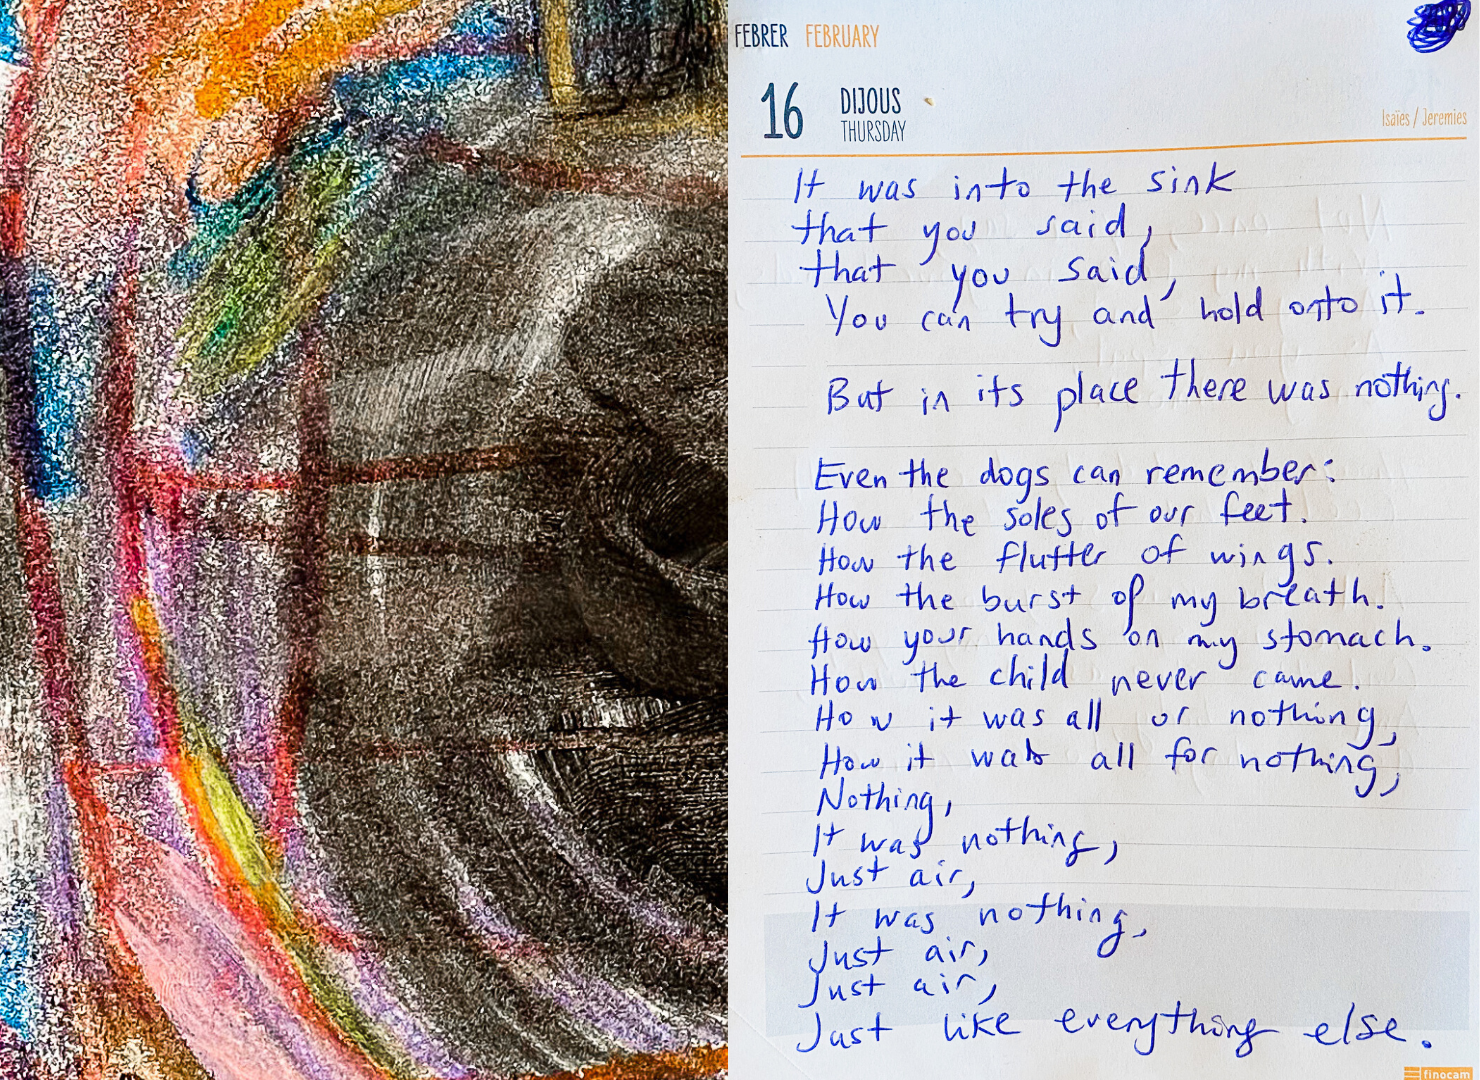 FEBRER FEBRUARY
16 DIJOUS
THURSDAY
Isaïes / Jeremies
It was into the sink
that you said,
that you said,
You can try and hold onto it.
But in its place there was nothing.
Even the dogs can remember:
How the soles of our feet.
How the flutter of wings.
How the burst of my breath.
How your hands on my stomach.
How the child never came.
How it was all or nothing,
How it was all for nothing,
Nothing,
It was nothing,
Just air,
It was nothing,
Just air,
Just air,
Just like everything else.
finocam